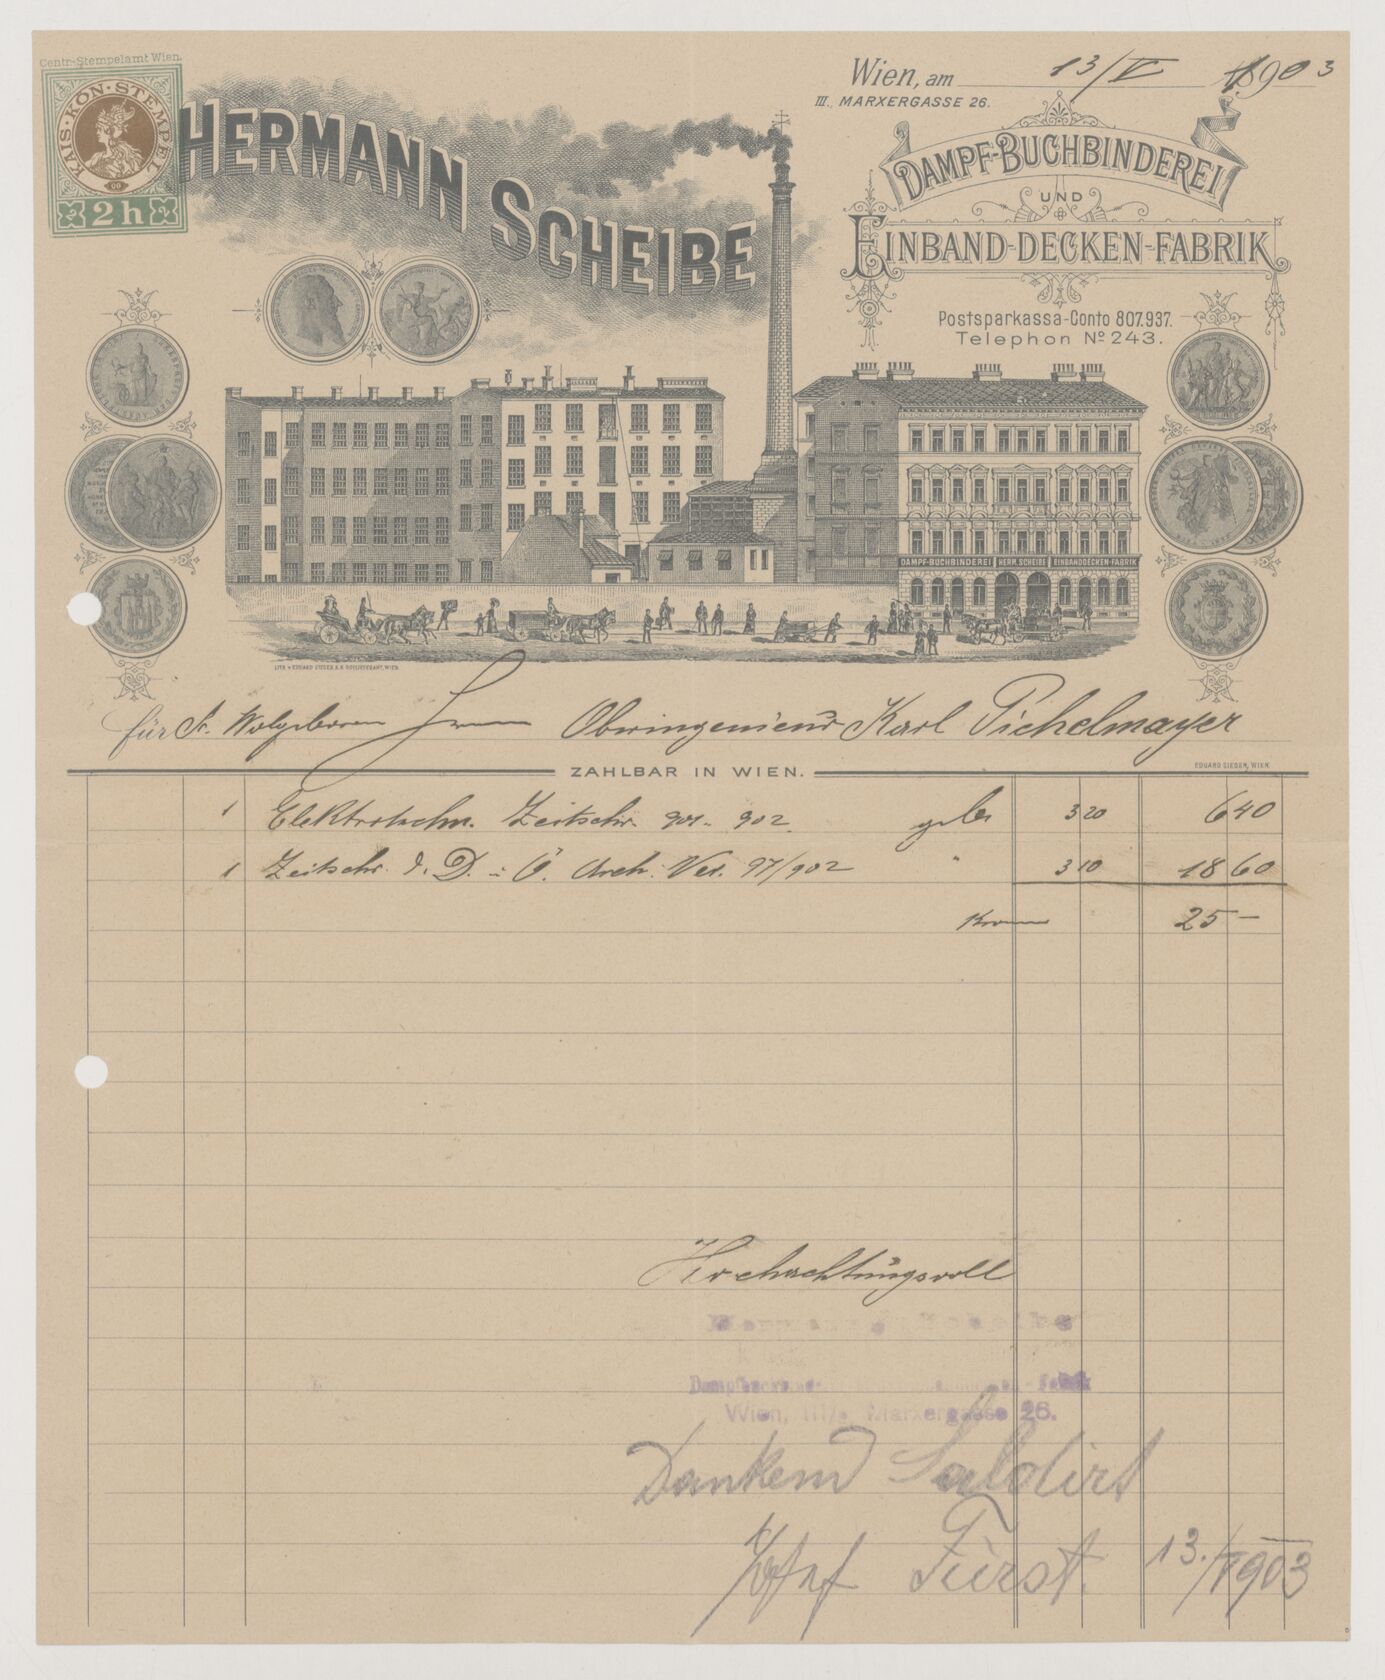 Centr-Stempelamt Wien.
KAIS·KÖN·STEMPEL
2h
Wien, am 13/V 1903
III., MARXERGASSE 26.
HERMANN SCHEIBE
DAMPF-BUCHBINDEREI
UND
EINBAND-DECKEN-FABRIK
Postsparkassa-Conto 807.937.
Telephon No 243.
DAMPF-BUCHBINDEREI HERM. SCHEIBE EINBANDDECKEN-FABRIK
LITH. v. EDUARD SIEGER, K.K. HOFLIEFERANT, WIEN.
für Sr. Wolgeboren Herrn Oberingenieur Karl Pichelmayer
EDUARD SIEGER, WIEN
ZAHLBAR IN WIEN.
1 Elektrotechn. Zeitschr. 901. 902. geb 3 20 6 40
1 Zeitschr. d. D. u. Ö. Arch. Ver. 97/902 " 3 10 18 60
Kronen 25 —
Hochachtungsvoll
Wien, III/, Marxergasse 26.
Dankend Saldirt
Josef Fürst. 13./V 903